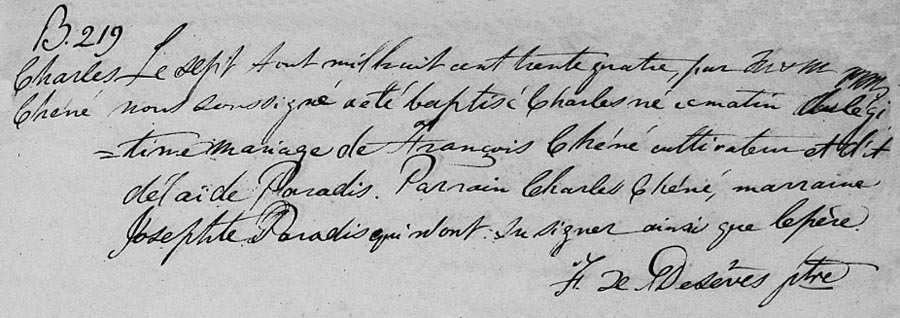 B. 219
Charles Le sept Aout mil huit cent trente quatre, par
Chéné nous soussigné a été baptisé Charles né ce matin du légi
=time mariage de François Chéné cultivateur et d'A
délaïde Paradis. Parrain Charles Chéné, marraine
Josephte Paradis qui n'ont su signer ainsi que le père.
F. De Desèves ptre